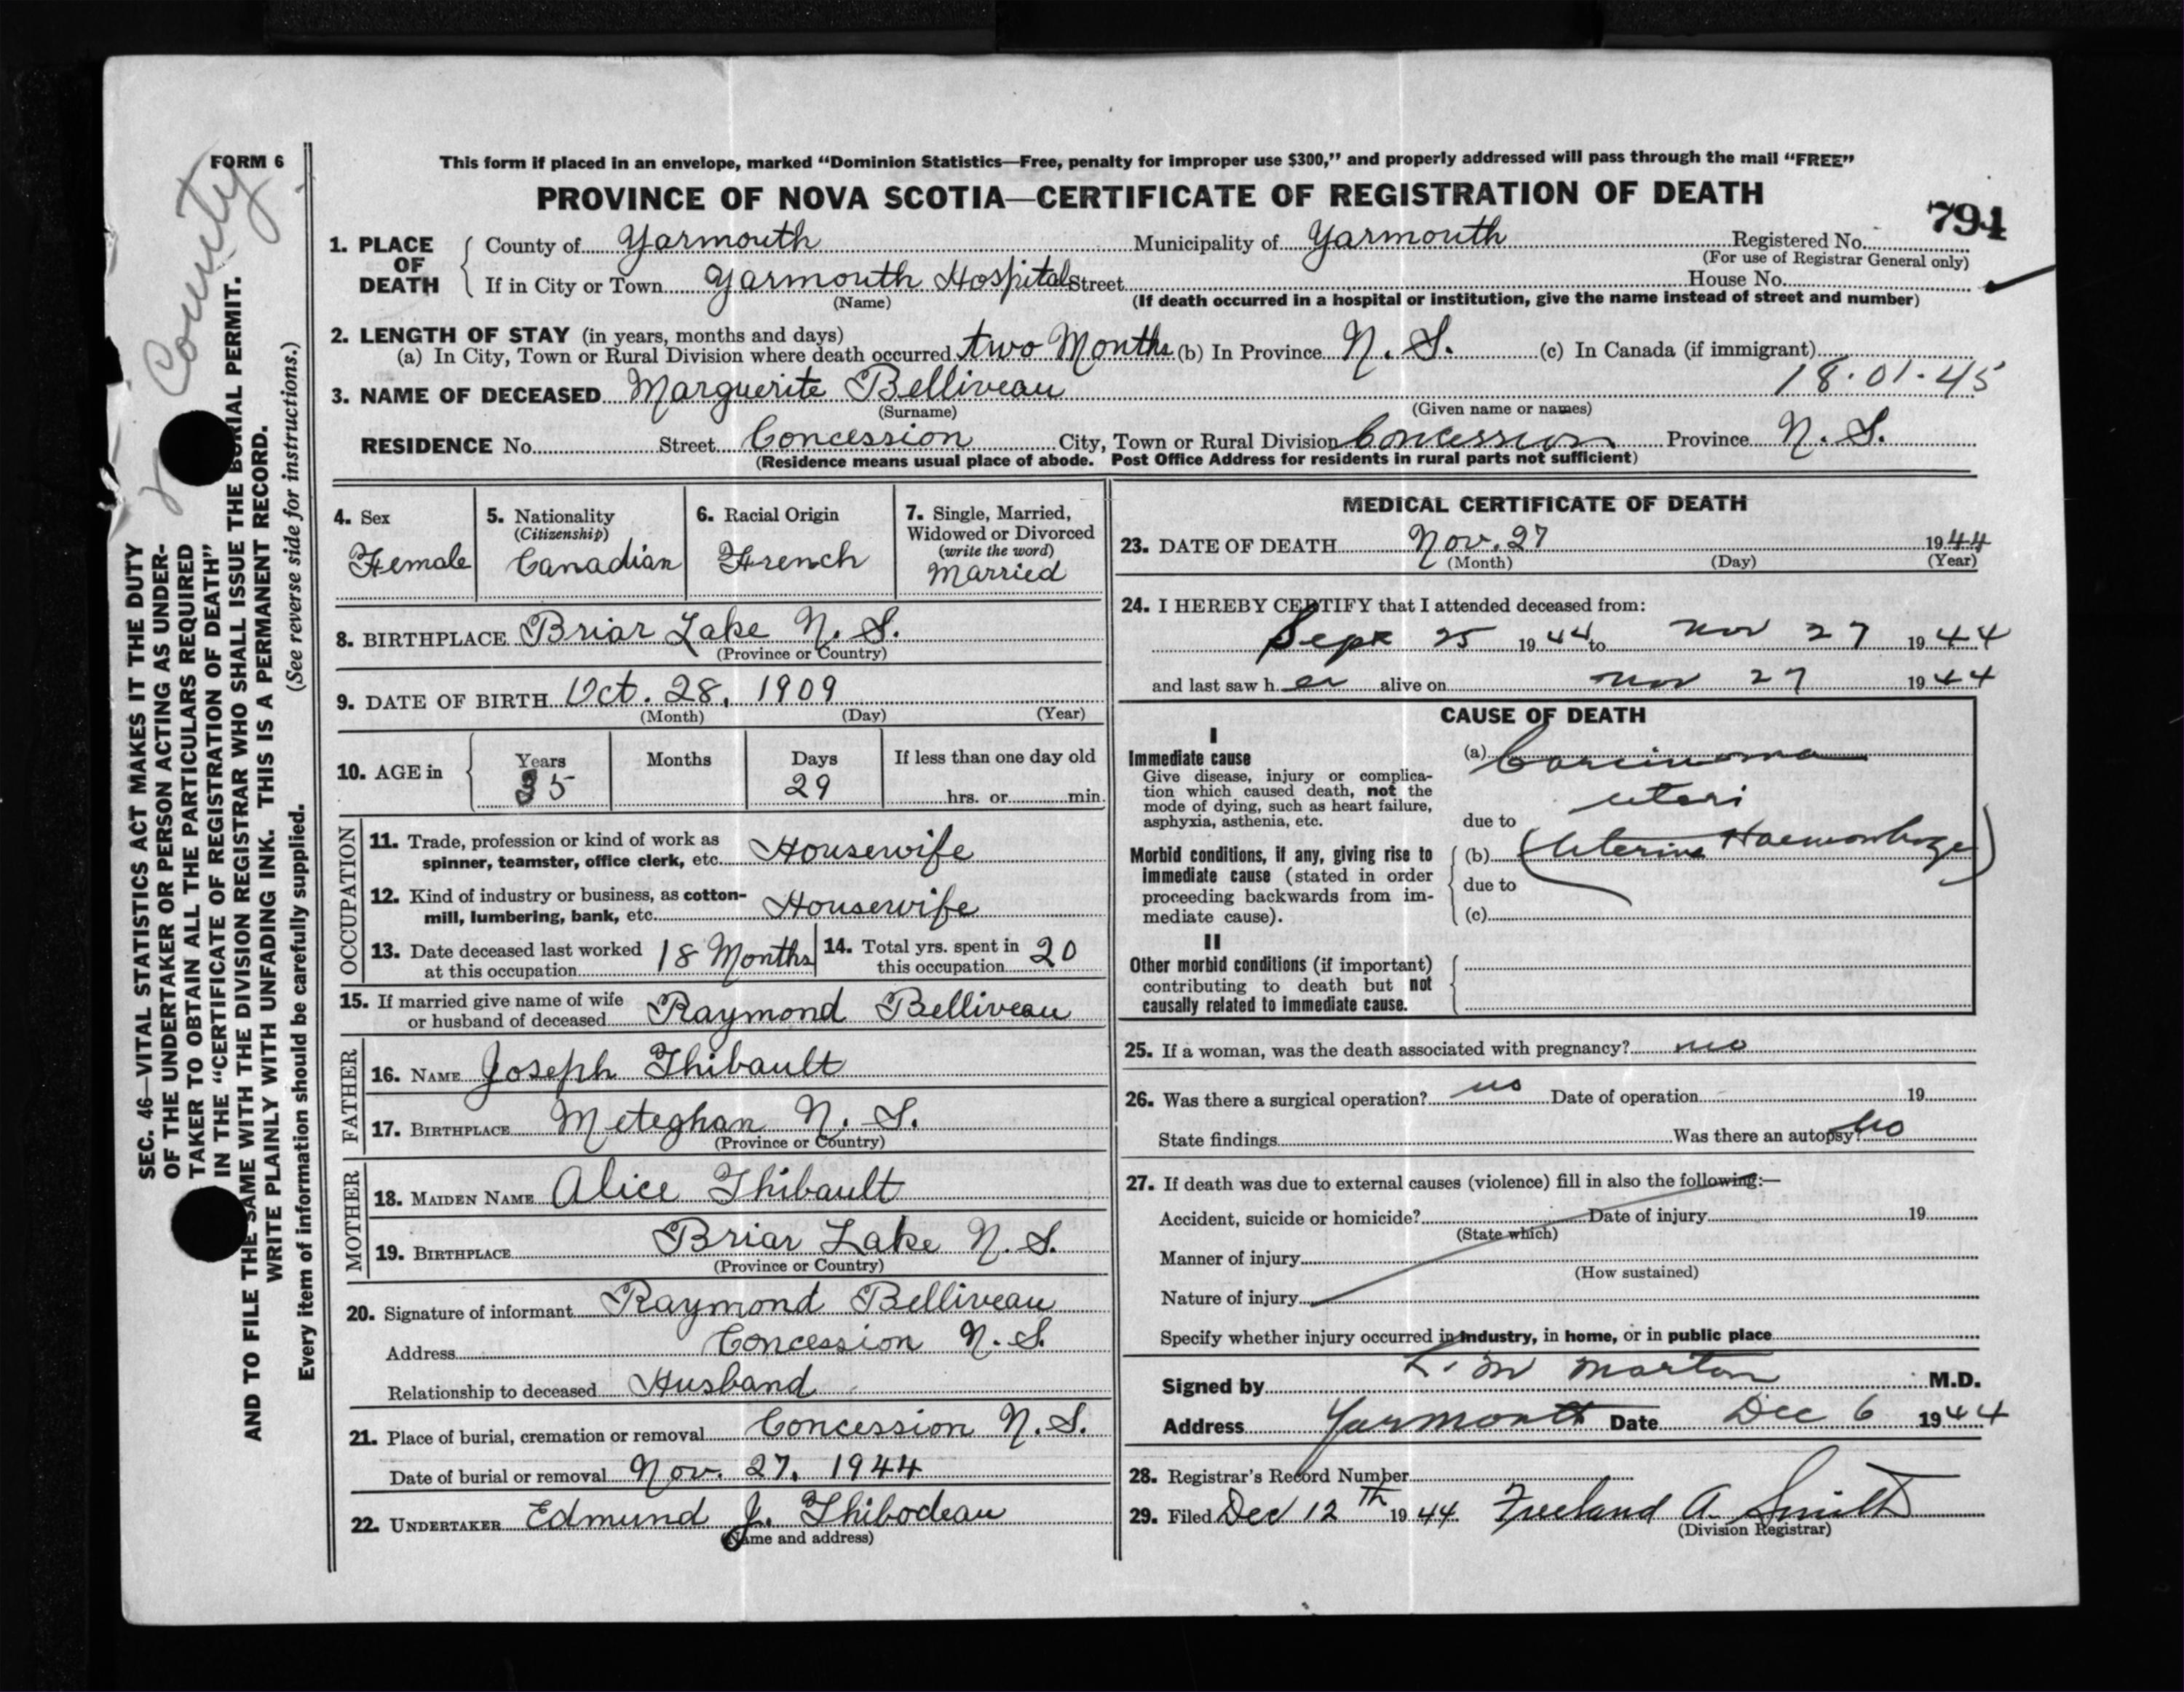 FORM 6
County
This form if placed in an envelope, marked “Dominion Statistics—Free, penalty for improper use $300,” and properly addressed will pass through the mail “FREE”
PROVINCE OF NOVA SCOTIA—CERTIFICATE OF REGISTRATION OF DEATH
794
1. PLACE OF DEATH { County of Yarmouth Municipality of Yarmouth Registered No.
(For use of Registrar General only)
If in City or Town Yarmouth Hospital Street House No.
(Name) (If death occurred in a hospital or institution, give the name instead of street and number)
2. LENGTH OF STAY (in years, months and days)
(a) In City, Town or Rural Division where death occurred two Months (b) In Province N. S. (c) In Canada (if immigrant)
18·01·45
3. NAME OF DECEASED Marguerite Belliveau
(Surname) (Given name or names)
RESIDENCE No. Street Concession City, Town or Rural Division Concession Province N. S.
(Residence means usual place of abode. Post Office Address for residents in rural parts not sufficient)
4. Sex
Female
5. Nationality
(Citizenship)
Canadian
6. Racial Origin
French
7. Single, Married,
Widowed or Divorced
(write the word)
Married
8. BIRTHPLACE Briar Lake N. S.
(Province or Country)
9. DATE OF BIRTH Oct. 28, 1909
(Month) (Day) (Year)
10. AGE in { Years Months Days If less than one day old
35 29 hrs. or min.
OCCUPATION
11. Trade, profession or kind of work as
spinner, teamster, office clerk, etc. Housewife
12. Kind of industry or business, as cotton-
mill, lumbering, bank, etc. Housewife
13. Date deceased last worked
at this occupation 18 Months
14. Total yrs. spent in
this occupation 20
15. If married give name of wife
or husband of deceased Raymond Belliveau
FATHER
16. NAME Joseph Thibault
17. BIRTHPLACE Meteghan N. S.
(Province or Country)
MOTHER
18. MAIDEN NAME Alice Thibault
19. BIRTHPLACE Briar Lake N. S.
(Province or Country)
20. Signature of informant Raymond Belliveau
Address Concession N. S.
Relationship to deceased Husband
21. Place of burial, cremation or removal Concession N. S.
Date of burial or removal Nov. 27, 1944
22. UNDERTAKER Edmund J. Thibodeau
(Name and address)
MEDICAL CERTIFICATE OF DEATH
23. DATE OF DEATH Nov. 27 1944
(Month) (Day) (Year)
24. I HEREBY CERTIFY that I attended deceased from:
Sept 25 1944 to Nov 27 1944
and last saw h er alive on Nov 27 1944
CAUSE OF DEATH
I
Immediate cause
Give disease, injury or complica-
tion which caused death, not the
mode of dying, such as heart failure,
asphyxia, asthenia, etc.
(a) Carcinoma
uteri
due to
Morbid conditions, if any, giving rise to
immediate cause (stated in order
proceeding backwards from im-
mediate cause).
(b) (Uterine Haemorrhage)
due to
(c)
II
Other morbid conditions (if important)
contributing to death but not
causally related to immediate cause.
25. If a woman, was the death associated with pregnancy? no
26. Was there a surgical operation? no Date of operation 19
State findings Was there an autopsy? No
27. If death was due to external causes (violence) fill in also the following:—
Accident, suicide or homicide? Date of injury 19
(State which)
Manner of injury
(How sustained)
Nature of injury
Specify whether injury occurred in industry, in home, or in public place
Signed by L. M Morton M.D.
Address Yarmouth Date Dec 6 1944
28. Registrar's Record Number
29. Filed Dec 12th 1944. Freeland A. Smith
(Division Registrar)
SEC. 46—VITAL STATISTICS ACT MAKES IT THE DUTY
OF THE UNDERTAKER OR PERSON ACTING AS UNDER-
TAKER TO OBTAIN ALL THE PARTICULARS REQUIRED
IN THE “CERTIFICATE OF REGISTRATION OF DEATH”
AND TO FILE THE SAME WITH THE DIVISION REGISTRAR WHO SHALL ISSUE THE BURIAL PERMIT.
WRITE PLAINLY WITH UNFADING INK. THIS IS A PERMANENT RECORD.
Every item of information should be carefully supplied. (See reverse side for instructions.)